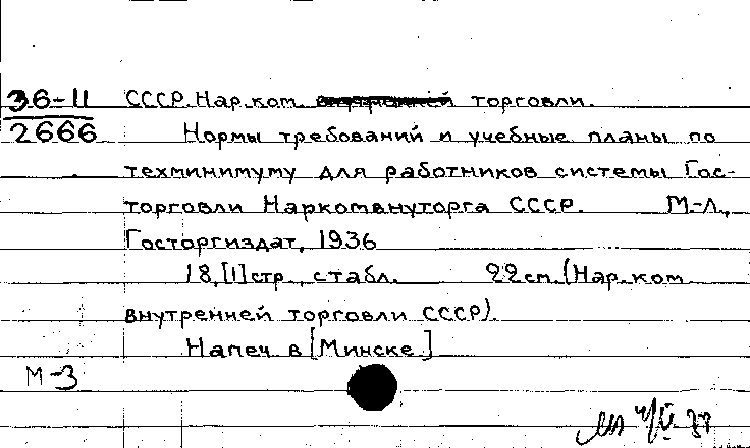 36-11
2666
СССР. Нар. ком. внутренней торговли.
Нормы требований и учебные планы по
техминимуму для работников системы Гос-
торговли Наркомвнуторга СССР. М-Л.,
Госторгиздат, 1936
18,[1] стр., с табл. 22 см. (Нар. ком
внутренней торговли СССР).
Напеч. в [Минске]
М-3